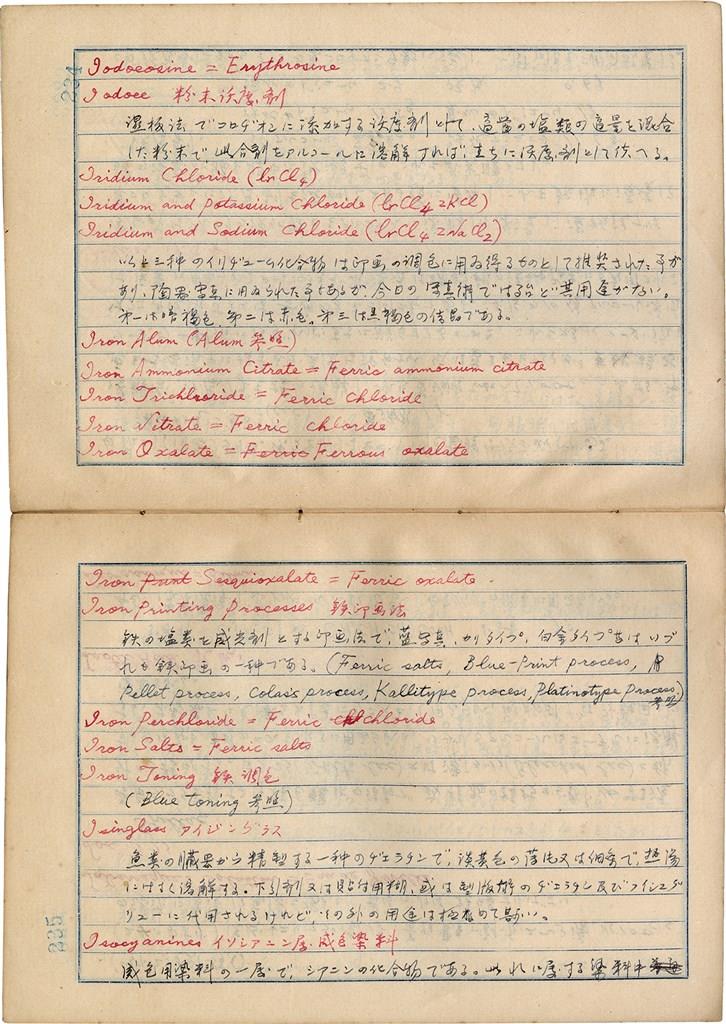 234
Iodoeosine = Erythrosine
Iodoee 粉末沃度剤
湿板法でコロヂオンに添加する沃度剤として、適当の塩類の適量を混合
した粉末で、此合剤をアルコールに溶解すれば、直ちに沃度剤として使へる。
Iridium Chloride (IrCl4)
Iridium and Potassium Chloride (IrCl4 2KCl)
Iridium and Sodium Chloride (IrCl4 2NaCl2)
以上三種のイリヂューム化合物は印画の調色に用ゐ得るものとして推奨された事が
あり、陶器写真に用ゐられた事もあるが、今日の写真術では殆ど其用途がない。
第一は暗褐色、第二は赤色、第三は黒褐色の結晶である。
Iron Alum (Alum 参照)
Iron Ammonium Citrate = Ferric ammonium citrate
Iron Trichlroride = Ferric chloride
Iron Nitrate = Ferric chloride
Iron Oxalate = Ferric Ferrous oxalate
Iron Print Sesquioxalate = Ferric oxalate.
Iron Printing Processes 鉄印画法
鉄の塩類を感光剤とする印画法で、藍写真、カリタイプ、白金タイプ等はいづ
れも鉄印画の一種である。(Ferric salts, Blue-Print process,
Pellet process, Colas's process, Kallitype process, Platinotype Process.)
参照
Iron Perchloride = Ferric chloride
Iron Salts = Ferric salts
Iron Toning 鉄調色
(Blue toning 参照)
Isinglass アイジングラス
魚類の臓器から精製する一種のヂェラチンで、淡黄色の薄片又は細条で、熱湯
にはよく溶解する。下引剤又は貼付用糊、或は型版術のヂェラチン及びフイシュグ
リューに代用されるけれど、その外の用途は極めて尠い。
Isocyanines イソシアニン属感色染料
感色用染料の一属で、シアニンの化合物である。此れに属する染料中
235